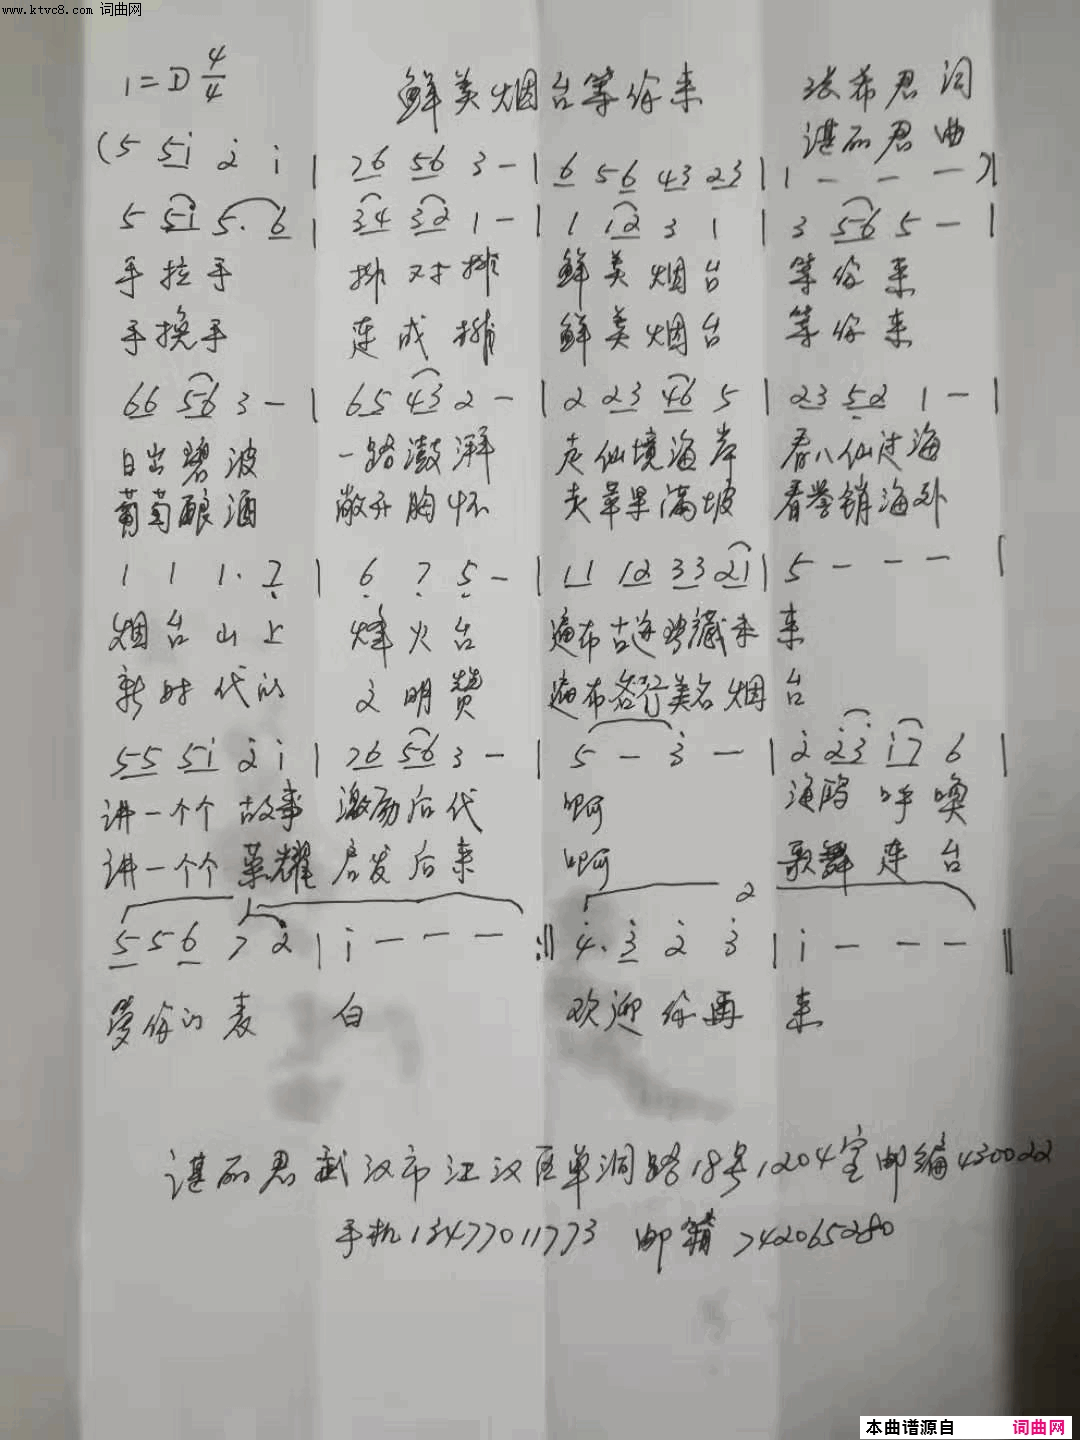 www.ktvc8.com 词曲网
1=D 4/4 鲜美烟台等你来 张希君 词
谌丽君 曲
(5 5i̇ 2̇ i̇ | 76 56 3 - | 6 56 43 23 | 1 - - - )|
5 5i̇ 5. 6 | 34 32 1 - | 1 12 3 1 | 3 56 5 - |
手拉手 排对排 鲜美烟台 等你来
手挽手 连成排 鲜美烟台 等你来
66 56 3 - | 65 43 2 - | 2 23 46 5 | 23 5̣2 1 - |
日出碧波 一路澎湃 走仙境海岸 看八仙过海
葡萄酿酒 敞开胸怀 夹苹果满坡 看誉销海外
1 1 1. 7̣ | 6̣ 7̣ 5̣ - | 11 12 33 21 | 5 - - - |
烟台山上 烽火台 遍布古迹珍藏未来
新时代的 文明赞 遍布各行美名烟台
55 5i̇ 2̇ i̇ | 76 56 3 - | 5 - 3̇ - | 2̇ 2̇3̇ i̇7 6 |
讲一个个 故事 激励后代 啊 海鸥呼唤
讲一个个 荣耀 启发后来 啊 歌舞连台
2
5 5 6 7 2̇ | i̇ - - - :‖ 4̇. 3̇ 2̇ 3̇ | i̇ - - - ‖
爱你的表 白 欢迎你再 来
谌丽君 武汉市江汉区单洞路18号1204室邮编430022
手机13477011773 邮箱742065280
本曲谱源自 词曲网